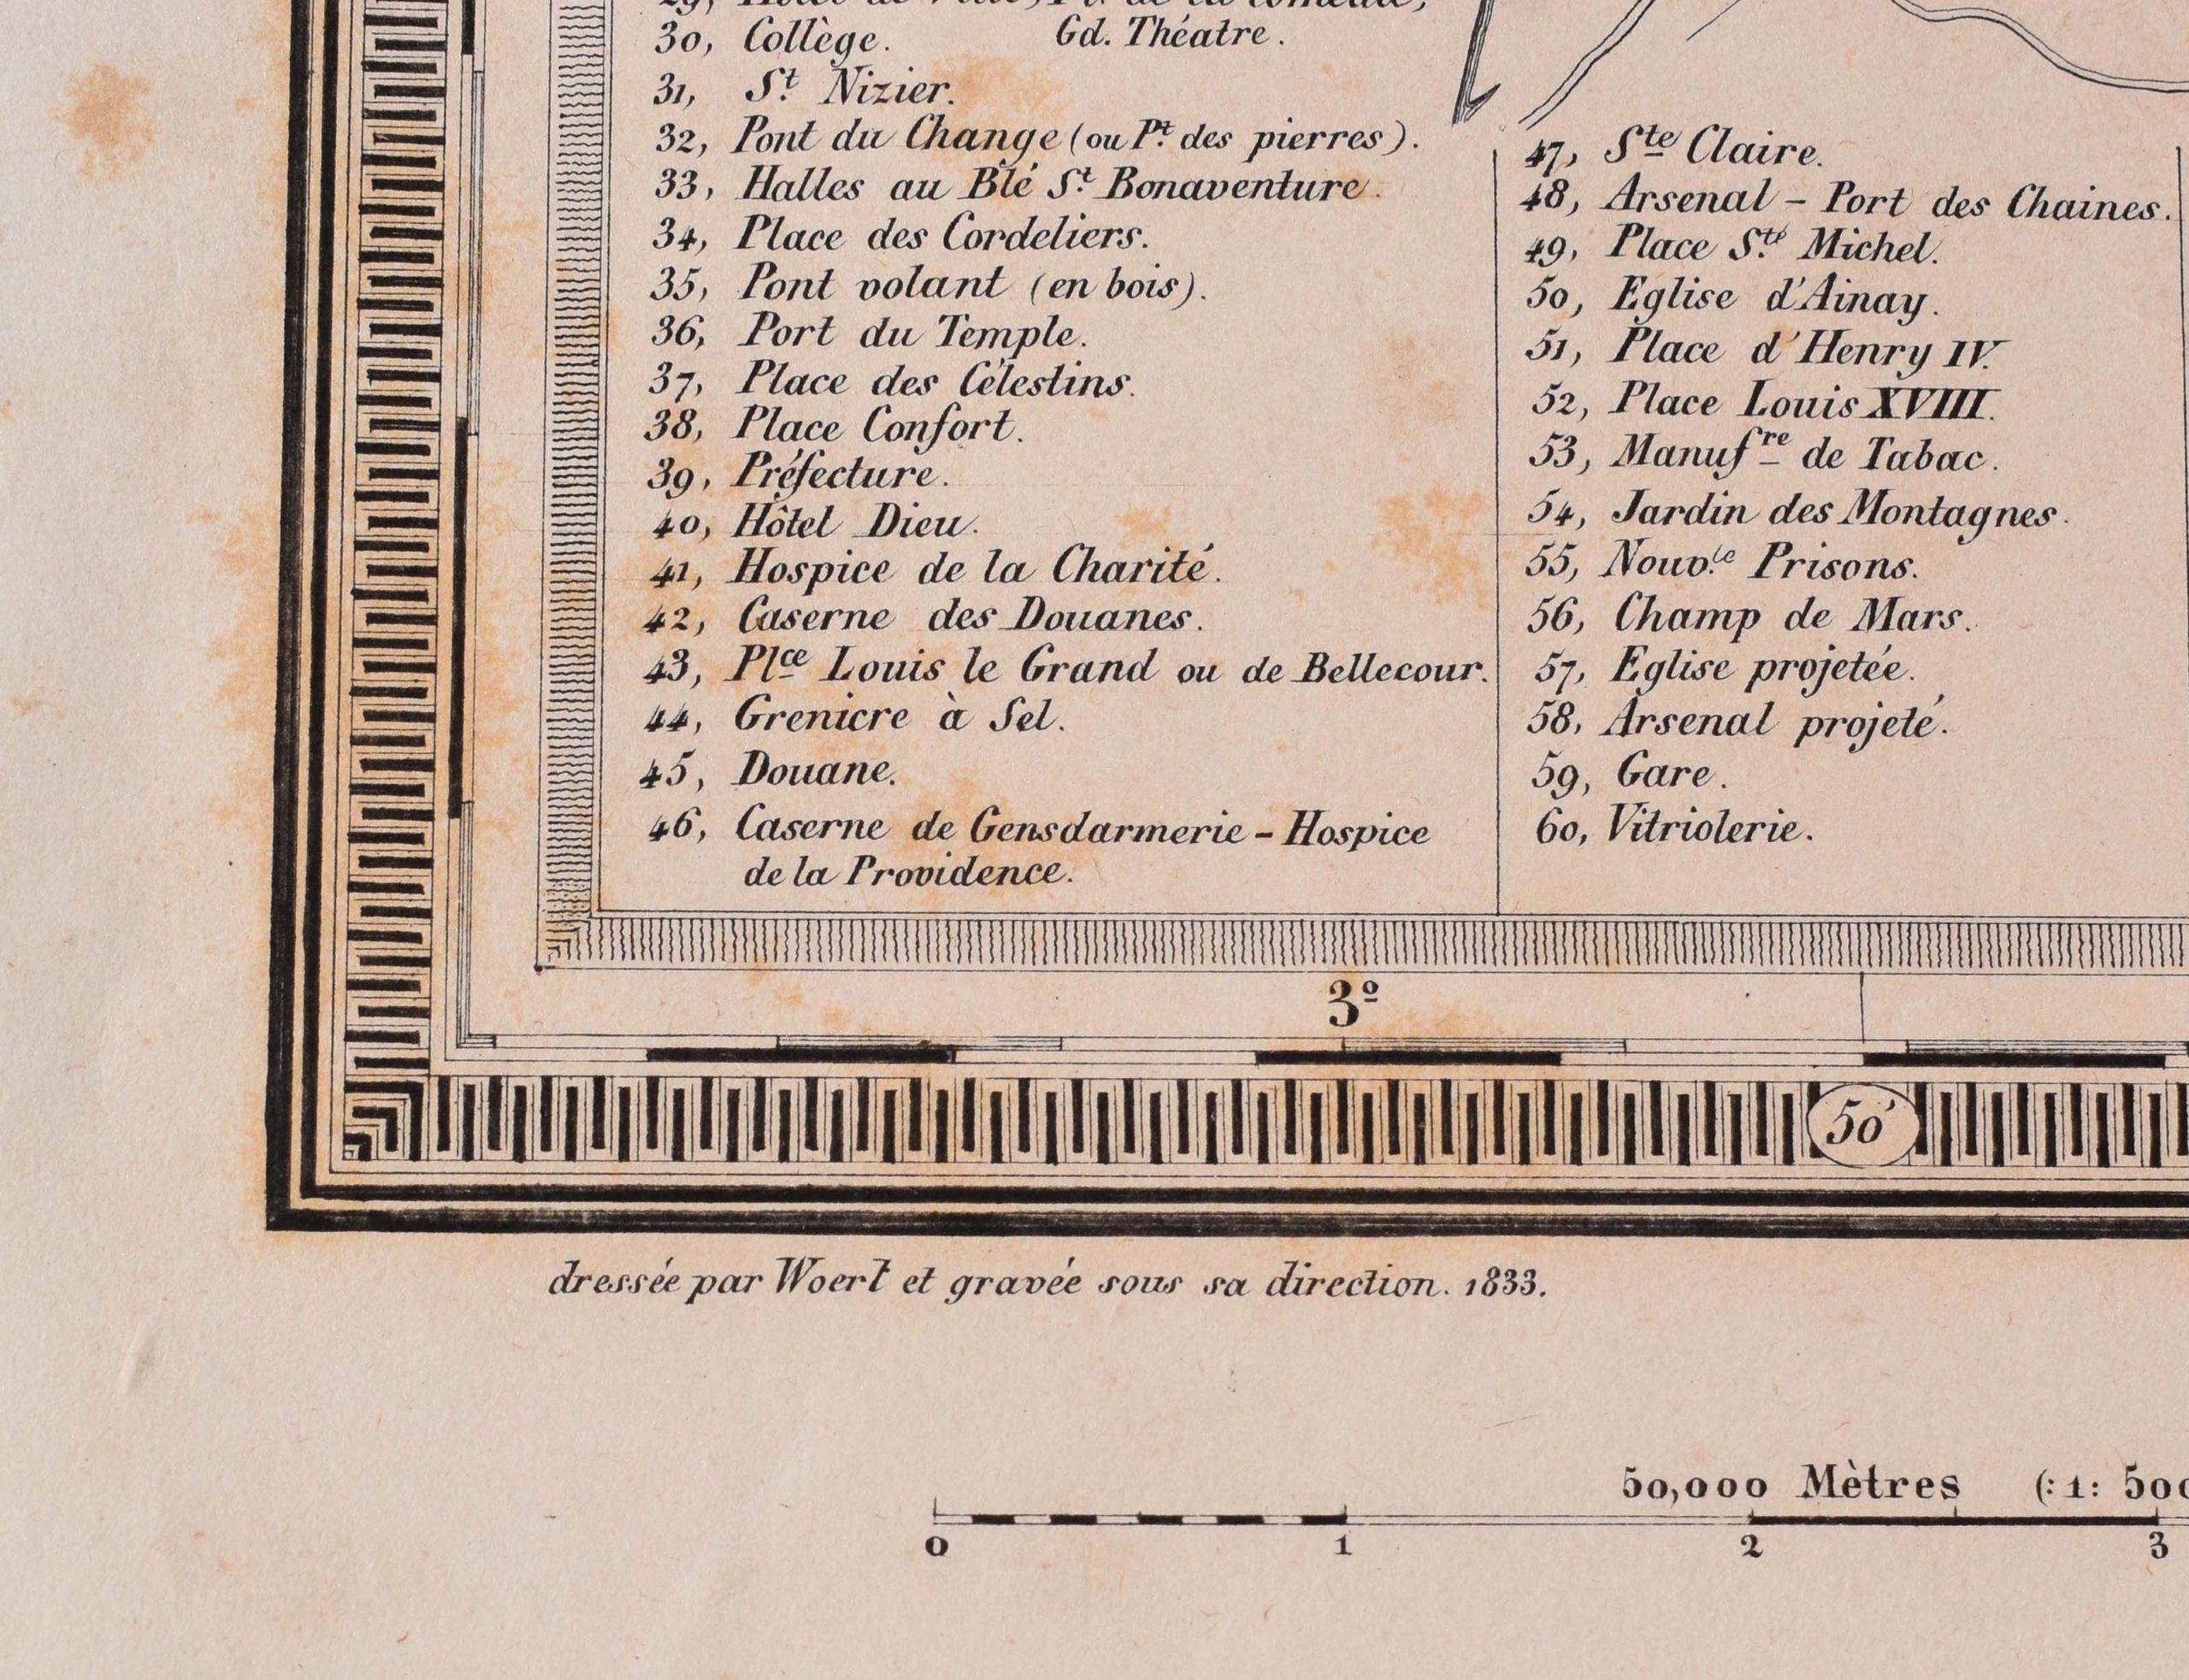 30, Collège. Gd. Théatre.
31, St. Nizier.
32, Pont du Change (ou Pt. des pierres).
33, Halles au Blé St. Bonaventure.
34, Place des Cordeliers.
35, Pont volant (en bois).
36, Port du Temple.
37, Place des Célestins.
38, Place Confort.
39, Préfecture.
40, Hôtel Dieu.
41, Hospice de la Charité.
42, Caserne des Douanes.
43, Plce Louis le Grand ou de Bellecour.
44, Grenicre à Sel.
45, Douane.
46, Caserne de Gensdarmerie - Hospice
de la Providence.
47, Ste Claire.
48, Arsenal - Port des Chaines.
49, Place Ste. Michel.
50, Eglise d'Ainay.
51, Place d'Henry IV.
52, Place Louis XVIII.
53, Manufre de Tabac.
54, Jardin des Montagnes.
55, Nouv.le Prisons.
56, Champ de Mars.
57, Eglise projetée.
58, Arsenal projeté.
59, Gare.
60, Vitriolerie.
3º
50'
dressée par Woerl et gravée sous sa direction. 1833.
50,000 Mètres (:1:
0 1 2 3